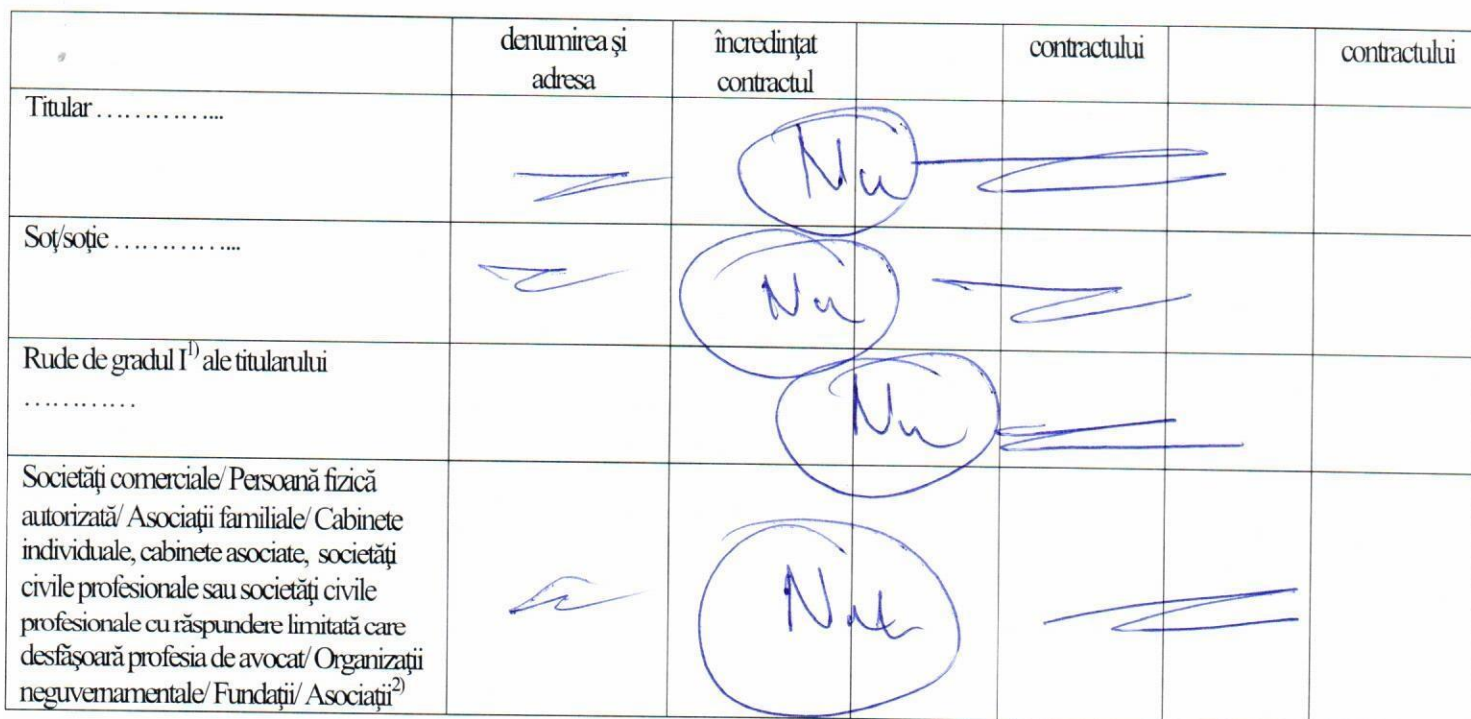 denumirea şi
adresa
încredinţat
contractul
contractului
contractului
Titular …………....
Nu
Soţ/soţie …………....
Nu
Rude de gradul I1) ale titularului
…………
Nu
Societăţi comerciale/ Persoană fizică
autorizată/ Asociaţii familiale/ Cabinete
individuale, cabinete asociate, societăţi
civile profesionale sau societăţi civile
profesionale cu răspundere limitată care
desfăşoară profesia de avocat/ Organizaţii
neguvernamentale/ Fundaţii/ Asociaţii2)
Nu